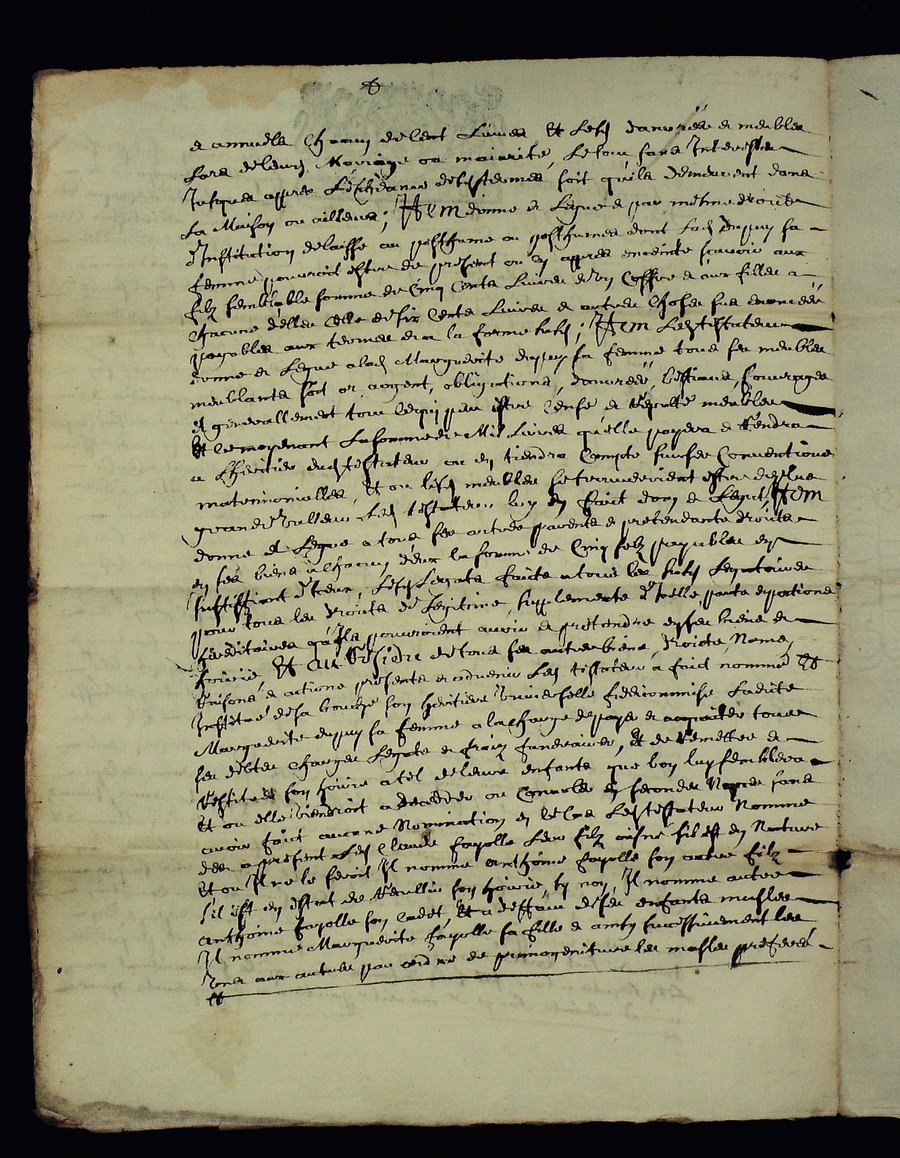 et annuels chacun de cent Livres Et Lesd danrées et meubles
Lors de leurs Mariage ou maiorité, Le tout sans Interestz
Jusques apprez L'escheance desd termes soit qu'ils demeurent dans
La Maison ou ailleurs; Item donne et Legue et par mesme droict
d'Institution delaisse au posthume ou posthumes dont Lad dupuy sa
femme pourroit estre de present ou cy appres enceinte scavoir aux
filz semblable somme de Cinq Cents Livres et un Coffre et aux filles a
chacune d'elles Celle de six Cents Livres et autres choses sus enoncées
payables aux termes et a la forme susd; Item Led testateur
donne et Legue a lad Marguerite dupuy sa femme tous ses meubles
meublants soit or argent, obligations, danrées, bestiaux, fourrages
et generallement tout ce qui peu estre Censé et Reputé meubles
Et ce moyenant La somme de Mil Livres qu'elle payera et Rendra
a L'heritier dud testateur ou en tiendra Compte sur ses Conventions
matrimonialles, Et ou lesd meubles se trouveroient estre de plus
grande valleur Led testateur luy en faict don et Legat, Item
donne et Legue a tous ses autres parents et pretendants droicts
en ses biens a chacun d'eux la somme de Cinq solz payables en
Lesd Legats faicts a tous les susd Legataires
pour tous les droicts de Legitime, supplements d'icelle, parts et portions
hereditaires qu'ils pourroient avoir et pretendre en ses biens et
hoirie Et au Residu de tous ses autres biens, droicts, Noms,
Raisons et actions presents et advenir Led testateur a faict nommé Et
Institué de sa bouche son heritiere Universelle fideicommise Ladite
Marguerite dupuy sa femme a la charge de payer et acquitter tous
ses debtes charges Legats et fraiz funeraires, Et de Remettre et
Restituer son hoirie a tel de leurs enfants que bon luy semblera
Et ou elle viendroit a decedder ou Convoler en secondes Nopces sans
avoir faict aucune Nomination en ce Cas Led testateur Nomme
dez a present Led Claude fayolle Leur filz aisné s'il est en Nature
Et ou Il ne le seroit Il nomme anthoine fayolle son autre filz
s'il est en estat de Recullir son hoirie, sy non, Il nomme autre
anthoine fayolle son Cadet, Et a deffaut de ses enfants masles
Il nomme Marguerite fayolle sa fille et ainsy successivement les
Unes aux autres par ordre de primogeniture les masles preferés